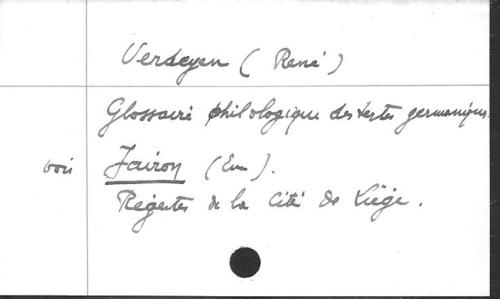 Verdeyen ( René )
Glossaire philologique des textes germaniques.
voir Fairon (Em).
Régestes de la Cité de Liége.